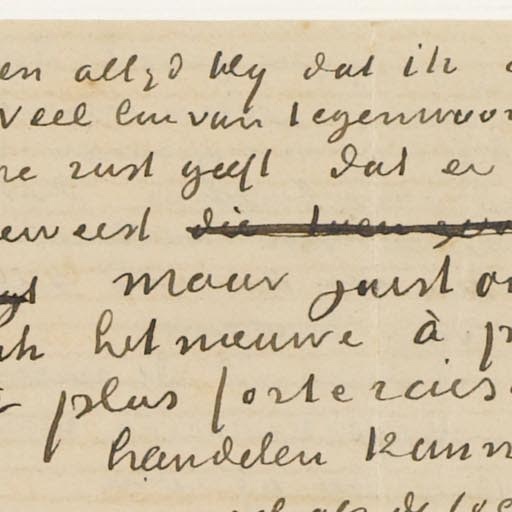 en altijd bly dat ik
veel lui van tegenwoor
me rust geeft dat er
eweest die toen
maar juist
ook het nieuwe à p
plus forte raiso
handelen kunn